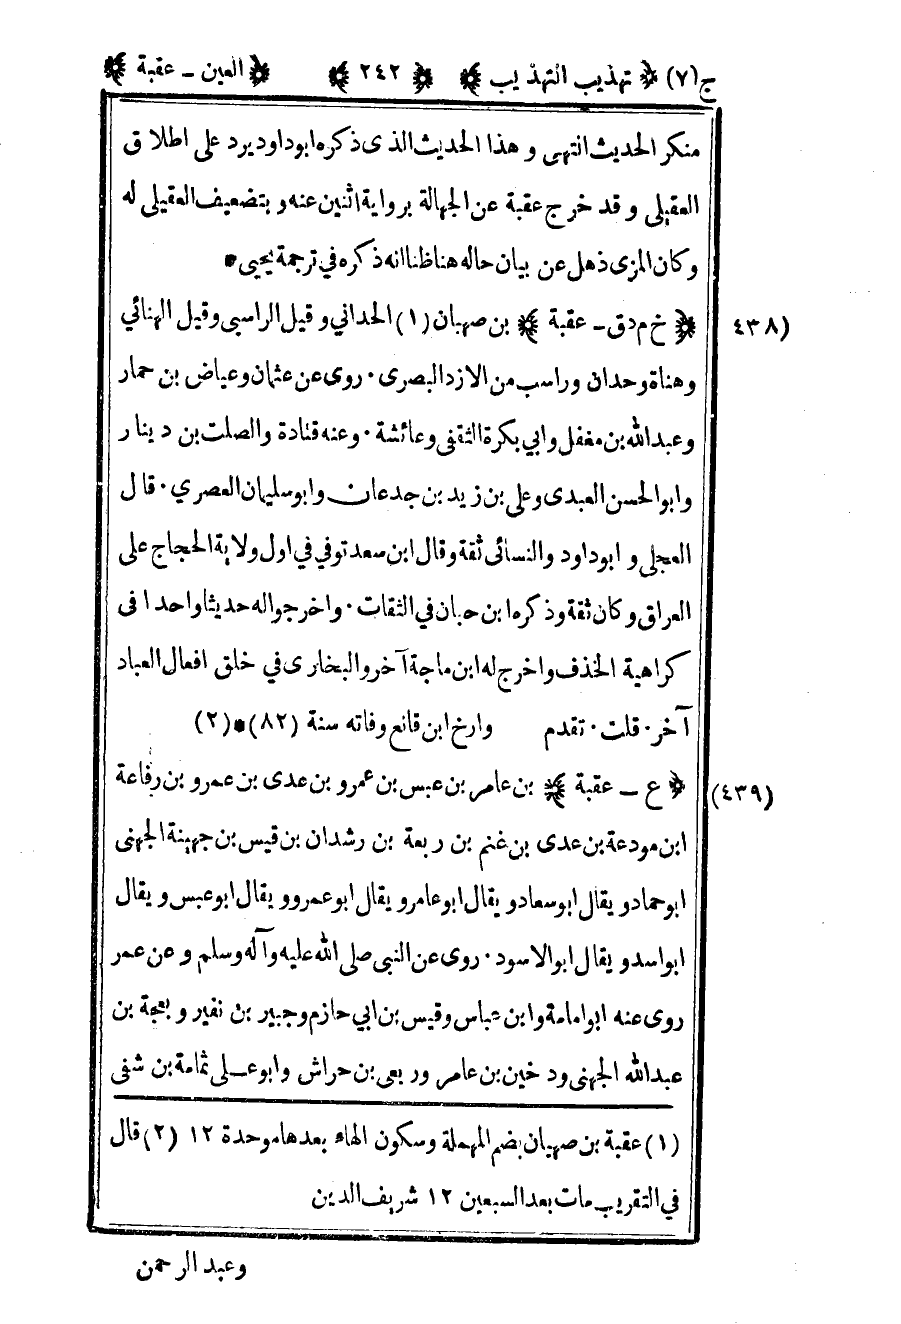 ج(٧) ﴿ تهذيب التهذيب ﴾ ﴿ ٢٤٢ ﴾ ﴿ العين ـ عقبة ﴾
منكر الحديث انتهى و هذا الحديث الذى ذكره ابو داود يرد على اطلاق
العقيلى و قد خرج عقبة عن الجهالة برواية اثنين عنه و بتضعيف العقيلى له
و كان المزى ذهل عن بيان حاله هنا ظنا انه ذكره في ترجمة يحيى *
(٤٣٨ ﴿ خ م د ق ـ عقبة ﴾ بن صهبان (١) الحداني و قيل الراسبى وقيل الهنائي
وهناة وحدان وراسب من الازد البصرى · روى عن عثمان وعياض بن حمار
وعبد الله بن مغفل وابي بكرة الثقفى وعائشة · وعنه قتادة والصلت بن دينار
وابو الحسن العبدى وعلى بن زيد بن جدعان وابو سليمان العصري · قال
العجلى و ابو داود والنسائى ثقة وقال ابن سعد توفي في اول ولاية الحجاج على
العراق وكان ثقة وذكره ابن حبان في الثقات · واخرجوا له حديثا واحدا فى
كراهية الخذف واخرج له ابن ماجة آخر والبخارى في خلق افعال العباد
آخر · قلت · تقدم وارخ ابن قانع وفاته سنة (٨٢) * (٢)
(٤٣٩) ﴿ ع ـ عقبة ﴾ بن عامر بن عبس بن عمرو بن عدى بن عمرو بن رفاعة
ابن مودعة بن عدى بن غنم بن ربعة بن رشدان بن قيس بن جهينة الجهنى
ابو حماد و يقال ابو سعاد و يقال ابو عامر و يقال ابو عمرو و يقال ابو عبس و يقال
ابو اسد و يقال ابو الاسود · روى عن النبى صلى الله عليه وآله وسلم و عن عمر
روى عنه ابو امامة وابن عباس وقيس بن ابي حازم وجبير بن نفير و بعجة بن
عبد الله الجهنى ود خين بن عامر وربعى بن حراش وابو عـلى ثمامة بن شفى
(١) عقبة بن صهبان بضم المهملة وسكون الهاء بعدها موحدة ١٢ (٢) قال
في التقريب مات بعد السبعين ١٢ شريف الدين
وعبد الرحمن